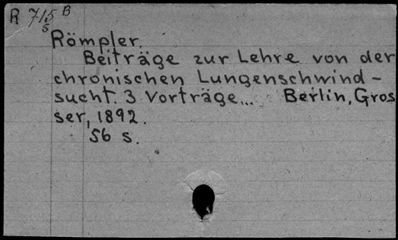 R 715 B
5
Römpler.
Beiträge zur Lehre von der
chronischen Lungenschwind-
sucht. 3 Vorträge... Berlin, Gros
ser, 1892.
56 s.